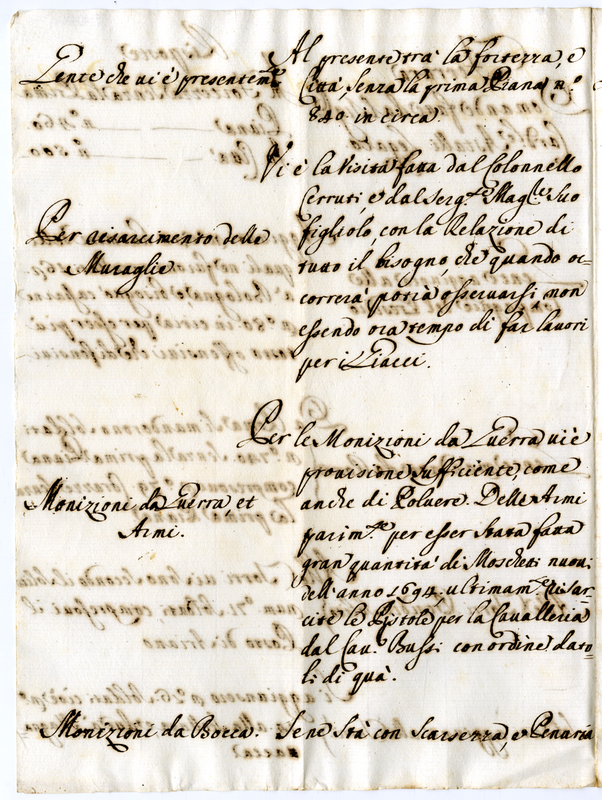 Gente che vi è presentem.te
Al presente trà la fortezza, e
Città, senza la prima Piana n.o
840 in circa.
Per risarcimento delle
Muraglie
Vi è la Visita fatta dal Colonnello
Cerruti, e dal Serg.te Mag.re suo
figliolo, con la Relazione di
tutto il bisogno, che quando oc-
correrà potrà osservarsi, non
essendo ora tempo di far lavori
per i Giacci.
Monizioni da Guerra, et
Armi.
Per le Monizioni da Guerra vi è
provisione sufficiente, come
anche di Polvere. Delle Armi
parim.te per esser stata fatta
gran quantità di Moschetti nuovi
dell'anno 1694, ultimam.te risar-
cite le Pistole per la Cavalleria
dal Cav.r Bussi con ordine dato-
li di quà.
Monizioni da Bocca.
Se ne stà con scarsezza, e Penuria